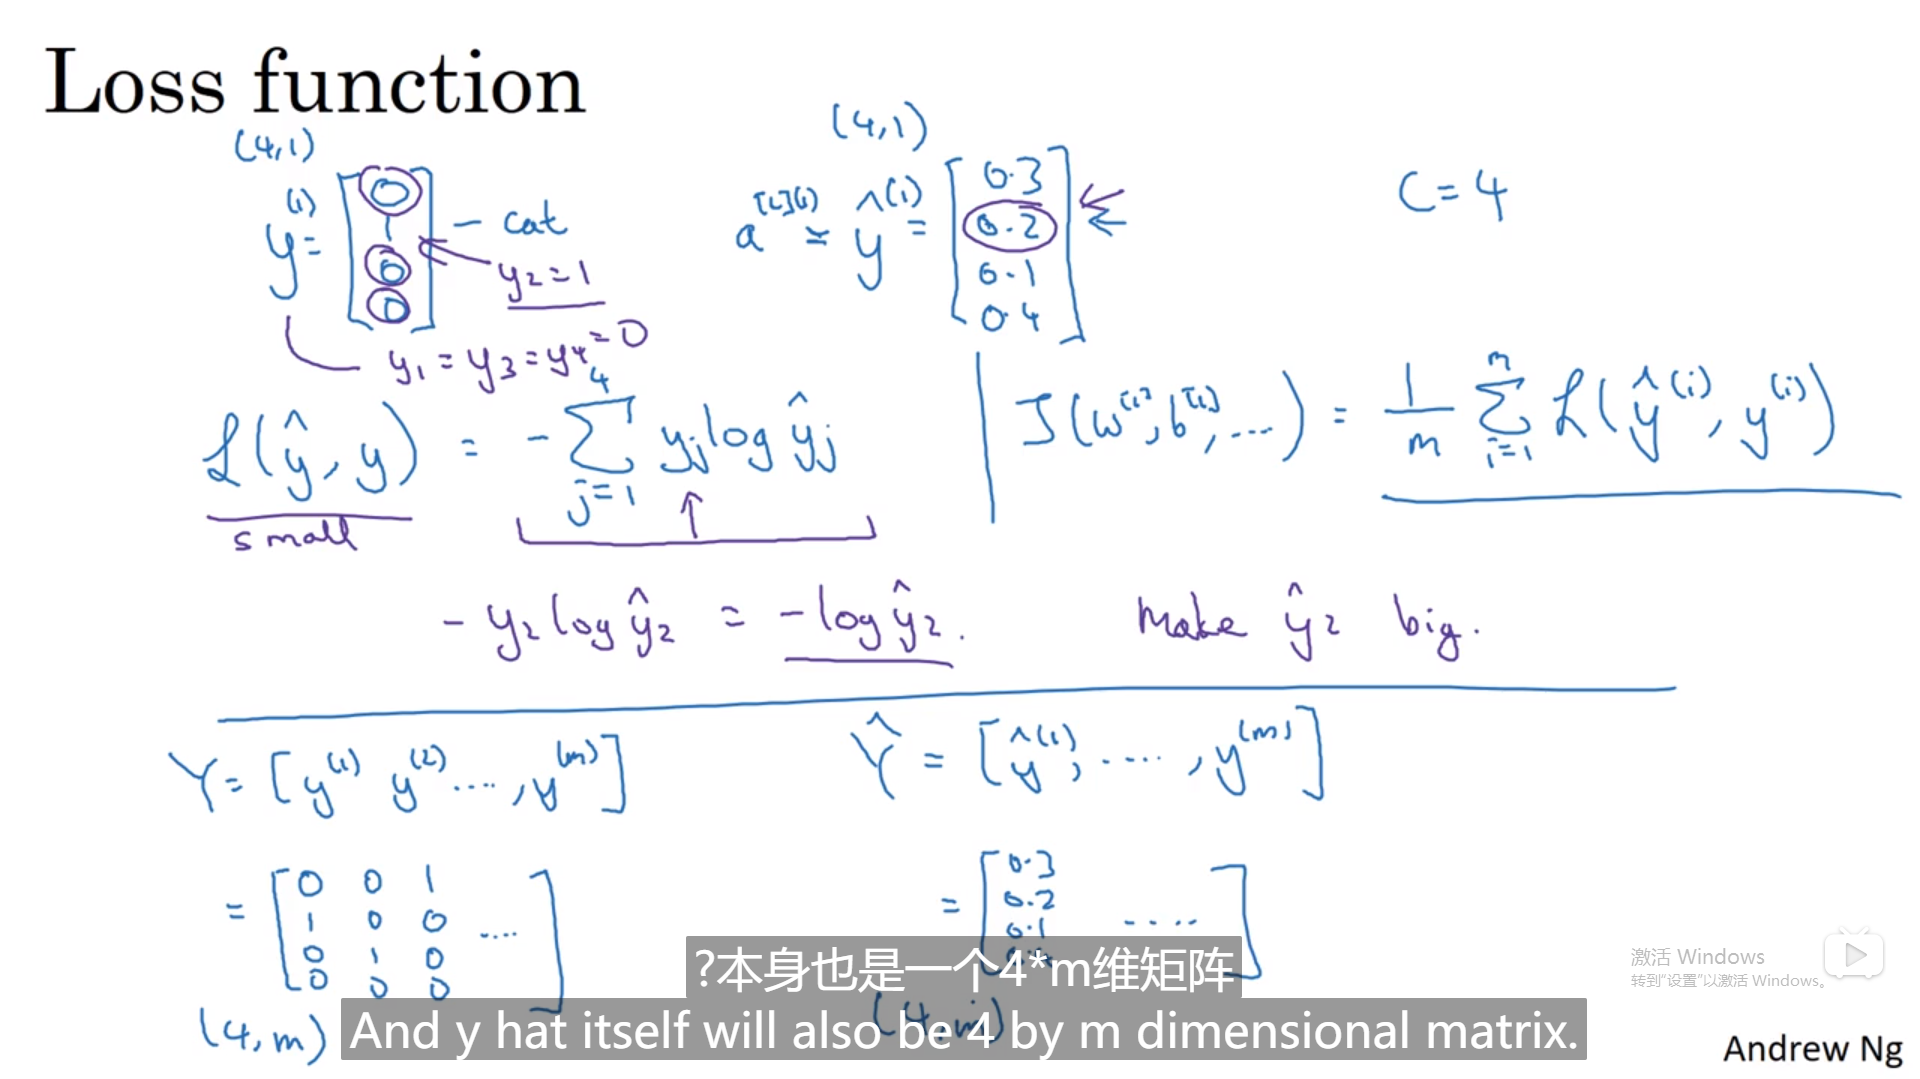 Loss function
(4,1)
(4,1)
y⁽¹⁾ = [0 1 0 0] - cat
y₂ = 1
a^[L](1) = ŷ⁽¹⁾ = [0.3 0.2 0.1 0.4]
C = 4
y₁ = y₃ = y₄ = 0
ℒ(ŷ, y) = - ∑_{j=1}^{4} y_j log ŷ_j
small
J(w^[1], b^[1], ....) = 1/m ∑_{i=1}^{m} ℒ(ŷ⁽ⁱ⁾, y⁽ⁱ⁾)
- y₂ log ŷ₂ = - log ŷ₂. Make ŷ₂ big.
Y = [y⁽¹⁾ y⁽²⁾ ...., y⁽ᵐ⁾]
Ŷ = [ŷ⁽¹⁾, ...., y⁽ᵐ⁾]
= [0 0 1
1 0 0 ....
0 1 0
0 0 0]
= [0.3
0.2 ....
0.1
(4,m)
(4,m)
?本身也是一个4*m维矩阵
And y hat itself will also be 4 by m dimensional matrix.
激活 Windows
转到“设置”以激活 Windows。
Andrew Ng